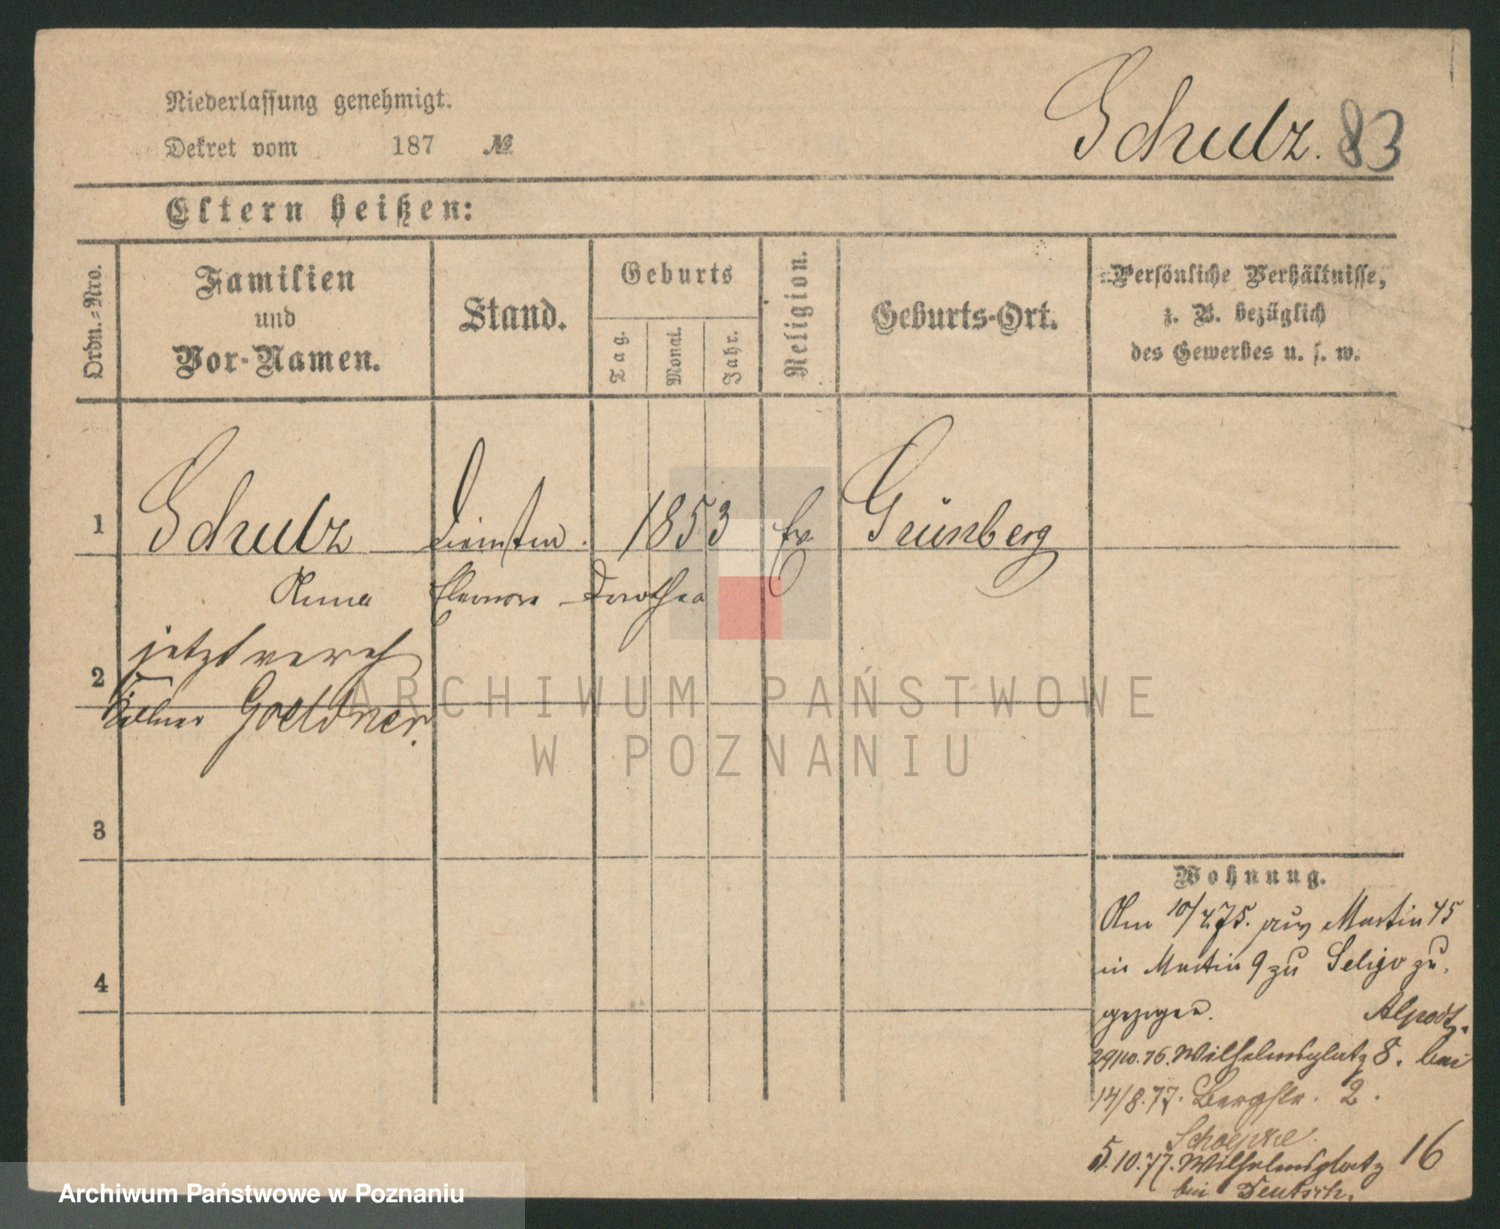 Niederlassung genehmigt.
Dekret vom 187 №
Schulz. 83
Eltern heißen:
Ordn.-Nro.
Familien
und
Vor-Namen.
Stand.
Geburts
Tag.
Monat.
Jahr.
Religion.
Geburts-Ort.
Persönliche Verhältnisse,
z. B. bezüglich
des Gewerbes u. s. w.
1 Schulz 1853 Ev Grünberg
Anna Eleonore Dorothea
jetzt vereh
2
Kellner Goeldner.
3
4
Wohnung.
Am 10/4 75. aus Martin 45
in Martin 9 zu Seligo zu,
gezogen.
29/10. 76. Wilhelmsplatz 8. bei
14/8. 77. Bergstr. 2.
5.10.77. Wilhelmsplatz 16
bei Deutsch.
ARCHIWUM PAŃSTWOWE
W POZNANIU
Archiwum Państwowe w Poznaniu